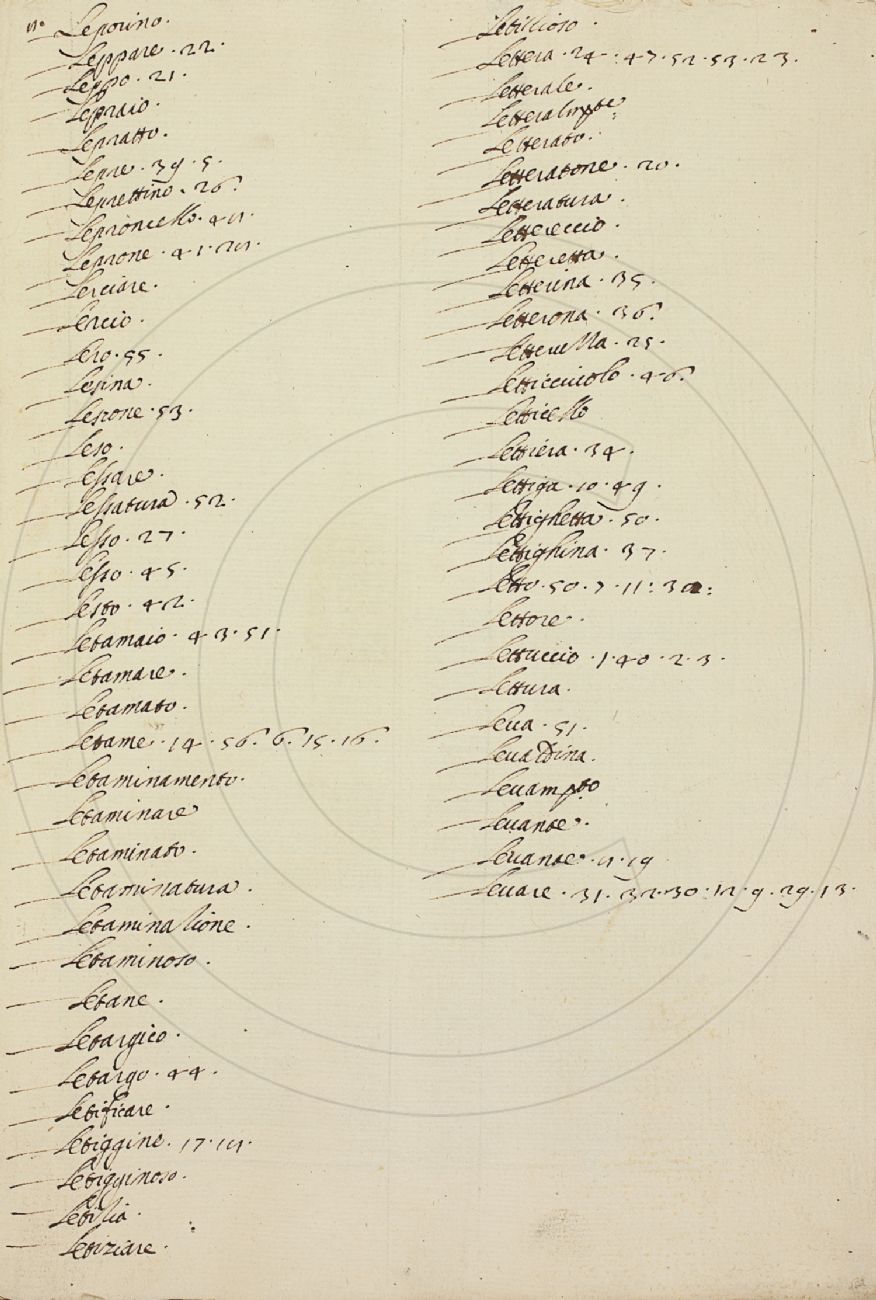 Leporino.
Leppare. 22.
Leppo. 21.
Lepraio.
Lepratto.
Lepre. 39. 5.
Leprettino. 26.
Leproncello. 48.
Leprone. 41. 28.
Lerciare.
Lercio.
Lero. 55.
Lesina.
Lesione. 53.
Leso.
Lessare.
Lessatura. 52.
Lesso. 27.
Lesso. 45.
Lesto. 42.
Letamaio. 43. 51.
Letamare.
Letamato.
Letame. 14. 56. 6. 15. 16.
Letaminamento.
Letaminare
Letaminato.
Letaminatura.
Letaminazione.
Letaminoso.
Letane.
Letargico.
Letargo. 44.
Letificare.
Letiggine. 17. 18.
Letigginoso.
Letizia.
Letiziare.
Letizioso.
Lettera. 24. 47. 52. 53. 23.
Letterale.
Letterato.
Letteratone. 20.
Letteratura.
Lettereccio.
Letteretta.
Letterina. 35.
Letterona. 36.
Letteruella. 25.
Letticciuolo. 46.
Letticello
Lettiera. 34.
Lettiga. 10. 49.
Lettighetta. 50.
Lettighina. 37.
Letto. 50. 7. 11:
Lettore.
Lettuccio. 1. 40. 2. 3.
Lettura.
Leua. 51.
Leualdina.
Leuante.
Leuante. 8. 19
Leuare. 31. 32. 30. 12. 9. 29. 13.